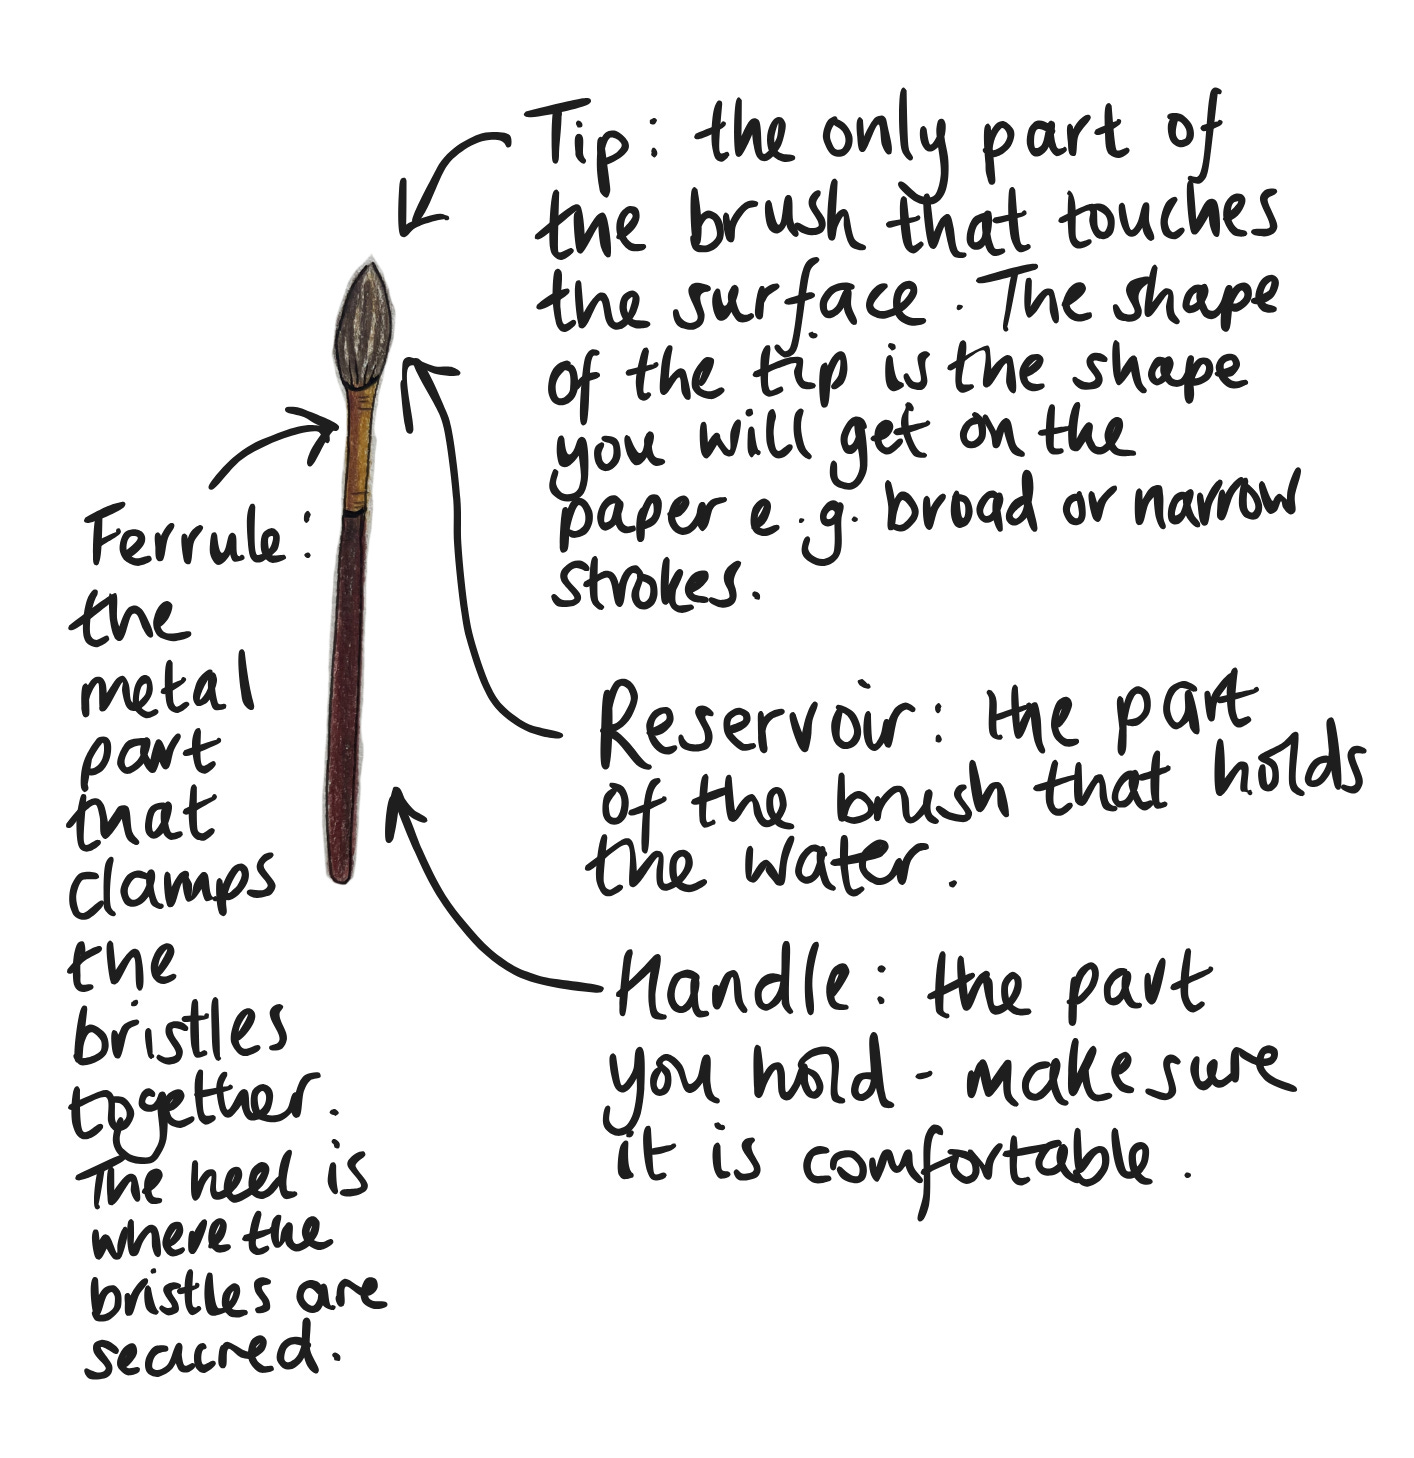 Tip: the only part of
the brush that touches
the surface. The shape
of the tip is the shape
you will get on the
paper e.g. broad or narrow
strokes.
Ferrule:
the
metal
part
that
clamps
the
bristles
together.
The heel is
where the
bristles are
secured.
Reservoir: the part
of the brush that holds
the water.
Handle: the part
you hold - make sure
it is comfortable.